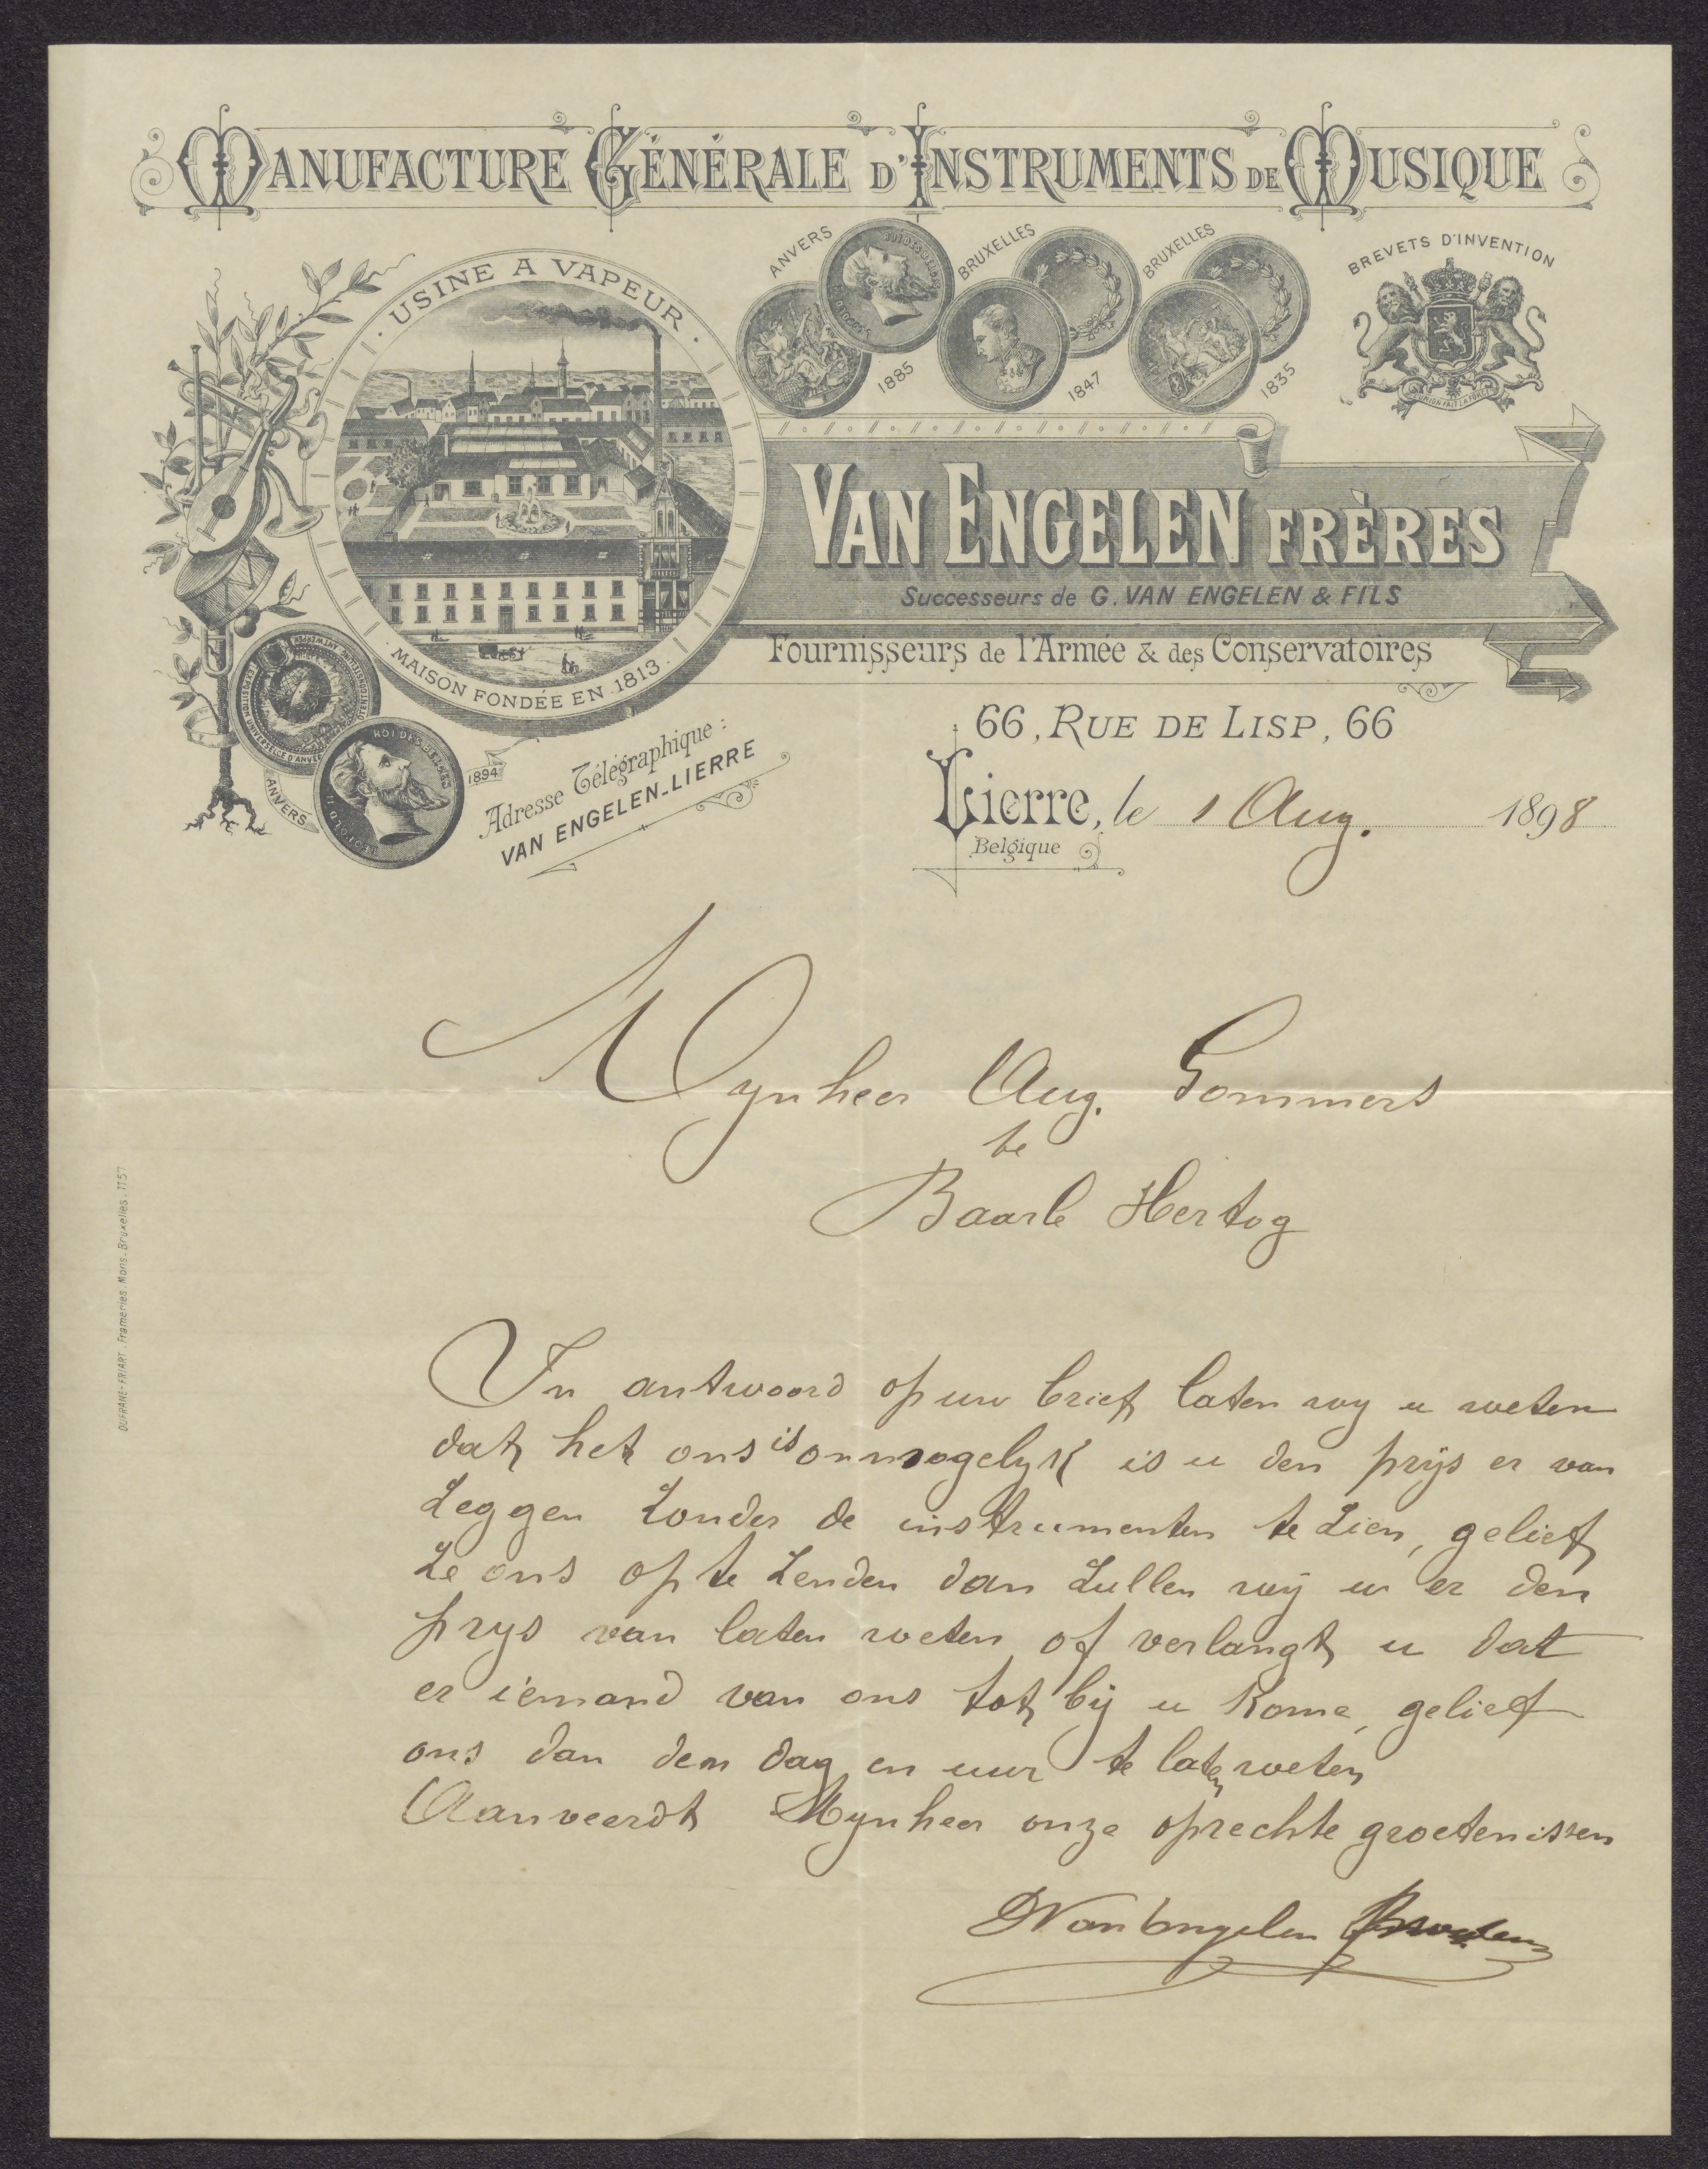 MANUFACTURE GÉNÉRALE D'INSTRUMENTS DE MUSIQUE
USINE A VAPEUR
MAISON FONDÉE EN 1813
ANVERS
1885
BRUXELLES
1847
BRUXELLES
1835
BREVETS D'INVENTION
L'UNION FAIT LA FORCE
VAN ENGELEN FRÈRES
Successeurs de G. VAN ENGELEN & FILS
Fournisseurs de l'Armée & des Conservatoires
ANVERS
1894
Adresse Télégraphique :
VAN ENGELEN-LIERRE
66, RUE DE LISP, 66
Lierre, le 1 Aug. 1898
Belgique
Mynheer Aug. Gommers
te
Baarle Hertog
In antwoord op uw brief laten wy u weten
dat het ons is onmogelyk is u den prijs er van
zeggen zonder de instrumenten te zien, gelief
ze ons op te zenden dan zullen wij u er den
prys van laten weten of verlangt u dat
er iemand van ons tot bij u kome, gelief
ons dan den dag en uur te laten weten
Aanveerdt Mynheer onze oprechte groetenissen
Van Engelen Broeders
DUFRANE-FRIART. Frameries. Mons. Bruxelles. 1157